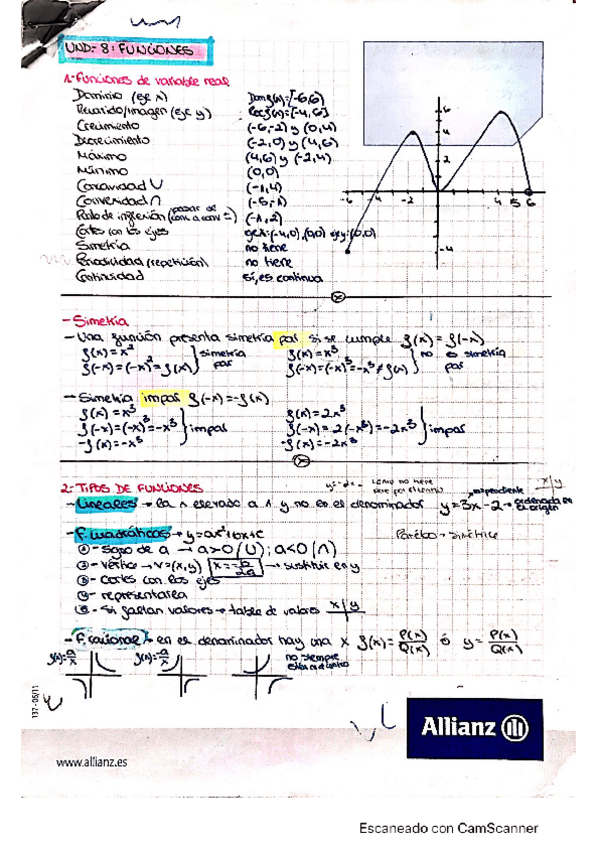 UND-8: FUNCIONES
1-Funciones de variable real
Dominio (eje x) Dom f(x)=[-6,6)
Recorrido/imagen (eje y) Rec f(x)=[-4,6]
Crecimiento (-6,-2) y (0,4)
Decrecimiento (-2,0) y (4,6)
Máximo (4,6) y (-2,4)
Mínimo (0,0)
Concavidad U (-1,4)
Convexidad ∩
Punto de inflexión (pasar de conv a conv) (-1,2)
Cortes con los ejes eje x:(-4,0),(0,0) eje y:(0,0)
Simetría no tiene
Periodicidad (repetición) no tiene
Continuidad sí, es continua
6
4
2
-6 -4 -2 4 5 6
-4
-Simetría
- Una función presenta simetría par si se cumple f(x) = f(-x)
f(x)=x² simetría par
f(-x)=(-x)²=f(x)
f(x)=x³ no simetría par
f(-x)=(-x)³=-x³≠f(x)
- Simetría impar f(-x)=-f(x)
f(x)=x³ impar
f(-x)=(-x)³=-x³
-f(x)=-x³
f(x)=2x³ impar
f(-x)=2(-x)³=-2x³
-f(x)=-2x³
2-TIPOS DE FUNCIONES
x | y
-Lineales → la x elevado a 1 y no en el denominador y=3x-2 → ordenada en el origen
pendiente
- F. cuadráticas → y=ax²+bx+c Parábola → simétrica
①- signo de a → a>0 (U); a<0 (∩)
②- vértice → v=(x,y) x=-b/2a → sustituir en y
③- cortes con los ejes
④- representarla
⑤- Si faltan valores → tabla de valores x | y
- F. racional → en el denominador hay una x f(x)=P(x)/Q(x) ó y=P(x)/Q(x)
f(x)=a/x f(x)=-a/x no siempre
137 - 05/11
Allianz
www.allianz.es
Escaneado con CamScanner